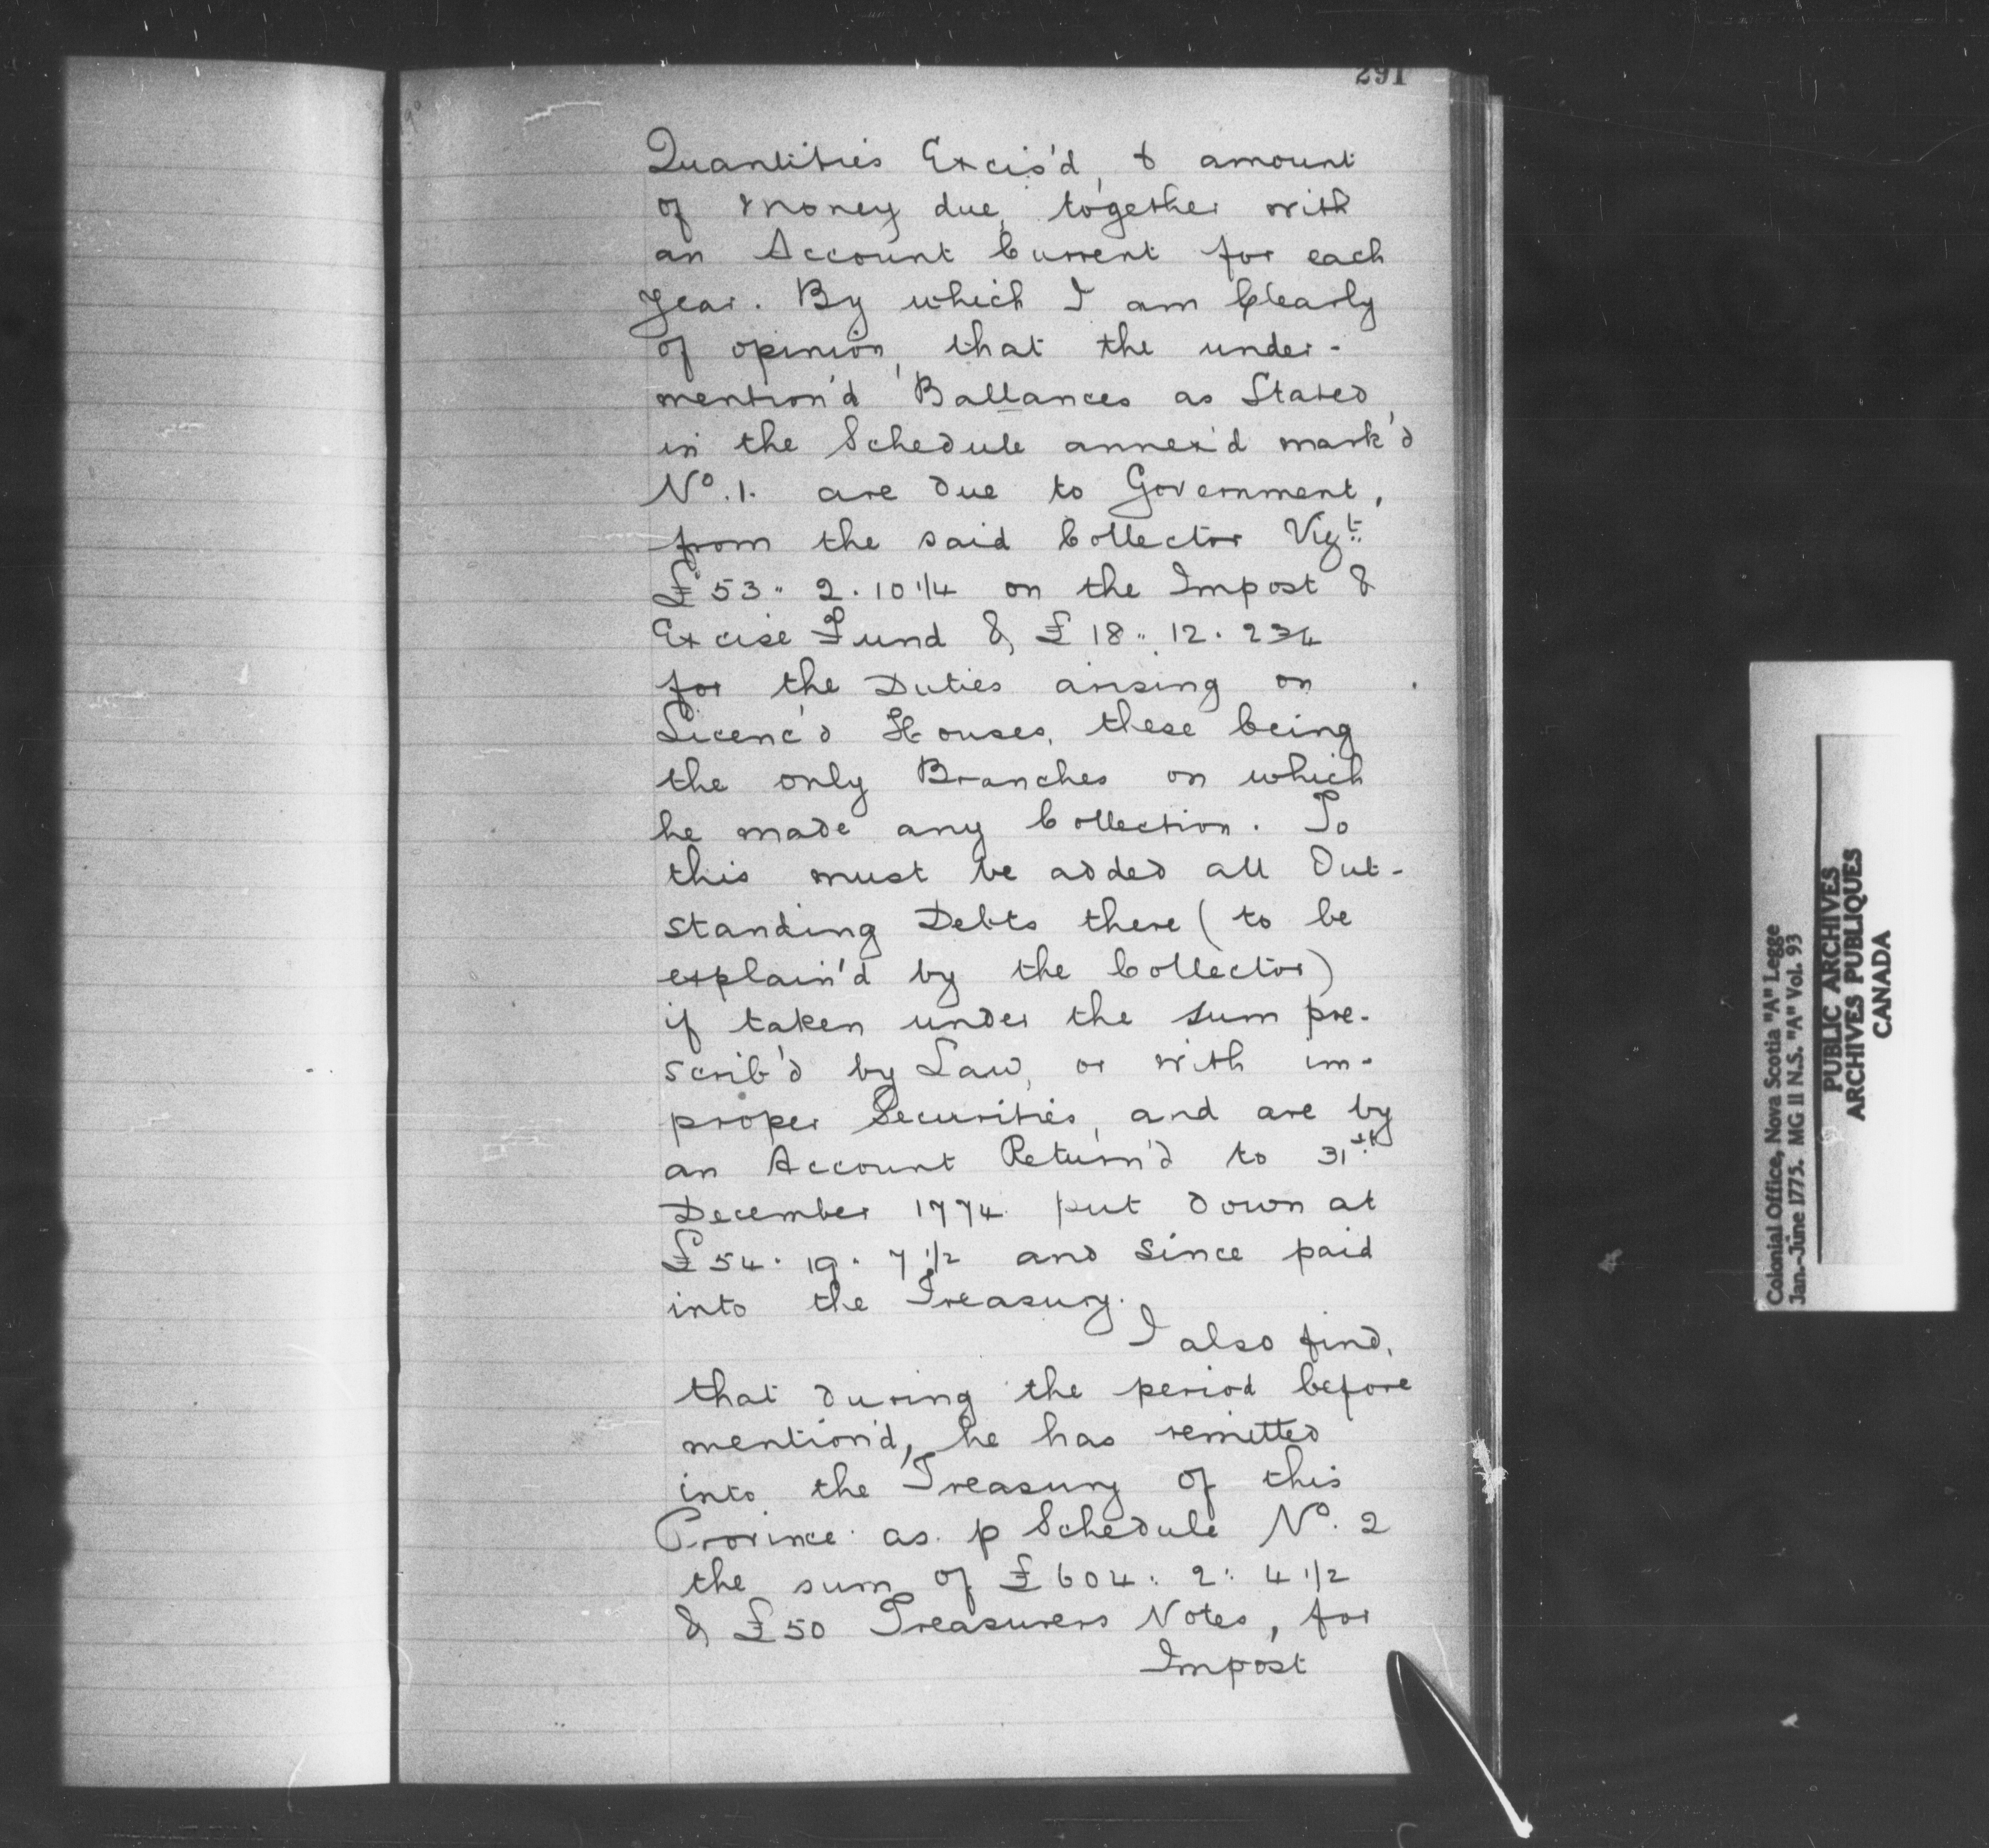 291
Quantities Excis'd, & amount
of Money due, together with
an Account Current for each
year. By which I am Clearly
of opinion, that the under-
mention'd Ballances as Stated,
in the Schedule annex'd mark'd
No. 1. are due to Government,
from the said Collector Vizt.
£53.. 2. 10 1/4 on the Impost &
Excise Fund & £18.. 12. 2 3/4
for the Duties arising on
Licenc'd Houses, these being
the only Branches on which
he made any Collection. To
this must be added all Out-
standing Debts there (to be
explain'd by the Collector)
if taken under the sum pre-
scrib'd by Law, or with im-
proper Securities, and are by
an Account Return'd to 31st
December 1774 put down at
£54. 19. 7 1/2 and since paid
into the Treasury.
I also find,
that during the period before
mention'd, he has remitted
into the Treasury of this
Province as p Schedule No. 2
the sum of £604: 2: 4 1/2
& £50 Treasurers Notes, for
Impost
Colonial Office, Nova Scotia "A" Legge
Jan.-June 1775. MG 11 N.S. "A" Vol. 93
PUBLIC ARCHIVES
ARCHIVES PUBLIQUES
CANADA